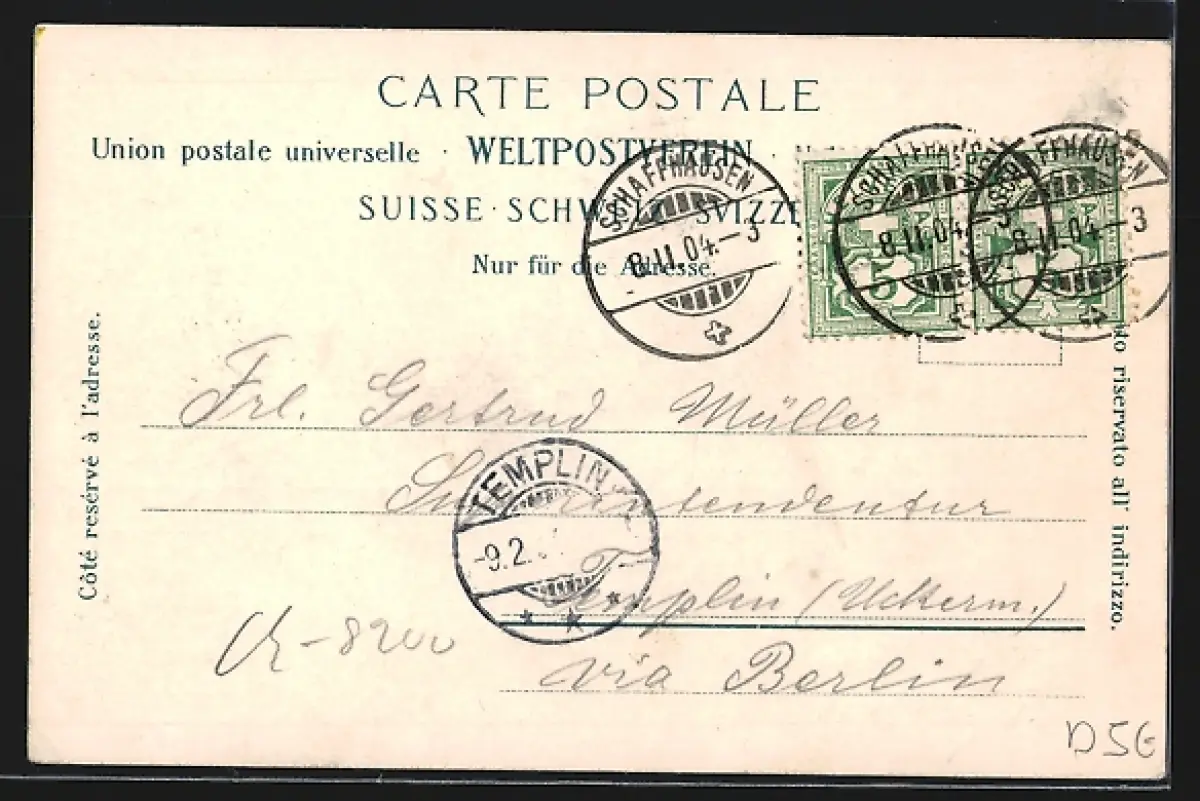 CARTE POSTALE
Union postale universelle · WELTPOSTVEREIN ·
SUISSE · SCHWEIZ · SVIZZE
Nur für die Adresse.
SCHAFFHAUSEN
8.II.04.–3
SCHAFFHAUSEN
8.II.04.–3
SCHAFFHAUSEN
8.II.04.–3
5
Côté resérvé à l'adresse.
riservato all' indirizzo.
Frl. Gertrud Müller
Superintendentur
Templin (Uckerm.)
via Berlin
TEMPLIN
-9.2.
8200
D56